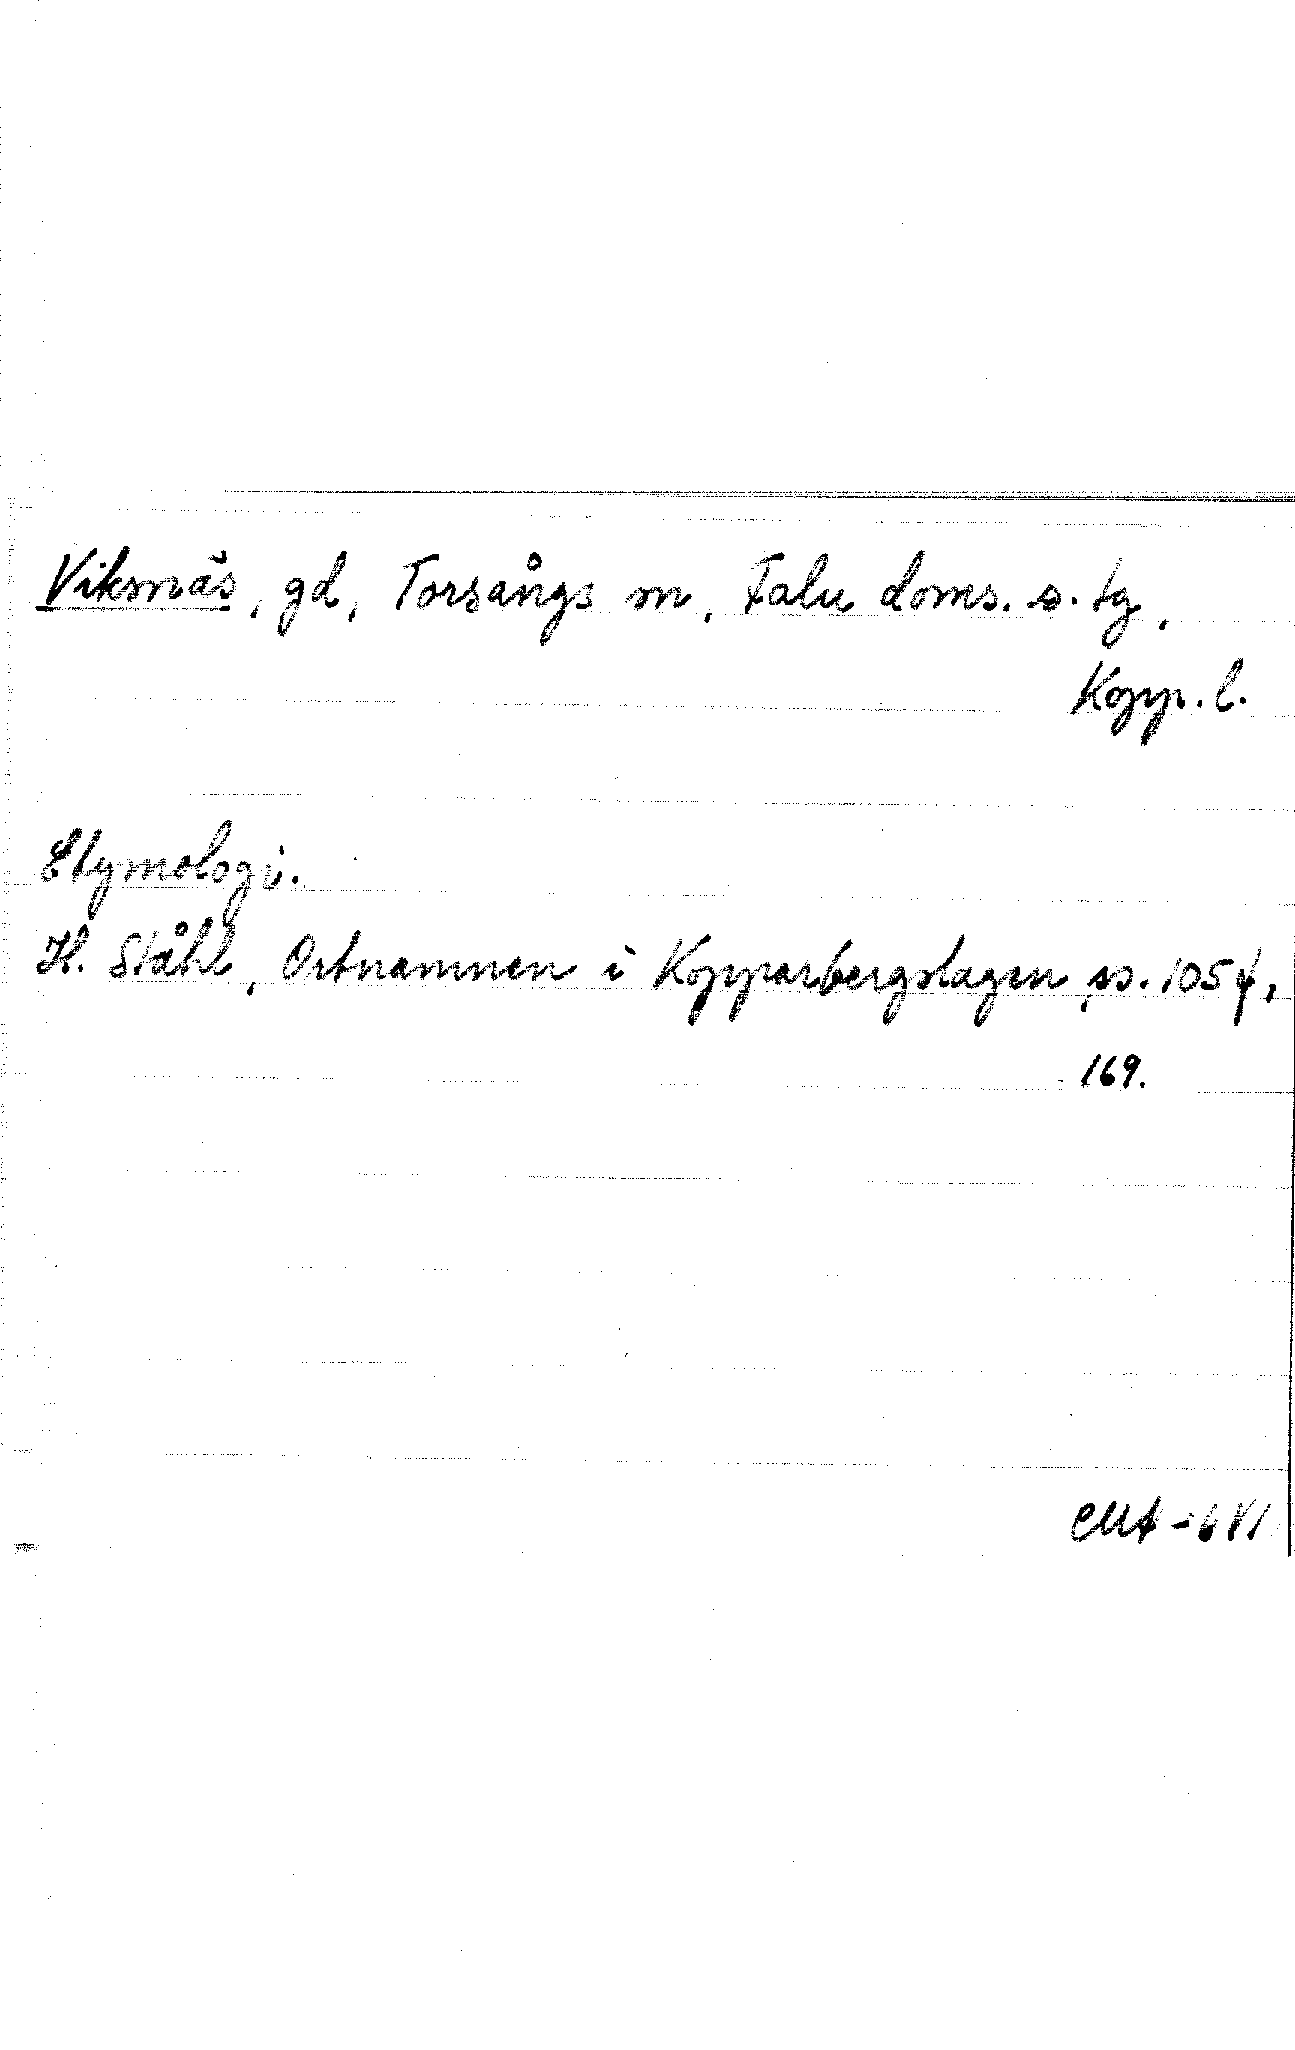 Viksnäs, gd, Torsångs sn, Falu doms. s. tg,
Kopp. l.
Etymologi.
H. Ståhl, Ortnamnen i Kopparbergslagen, ss. 105 f,
169.